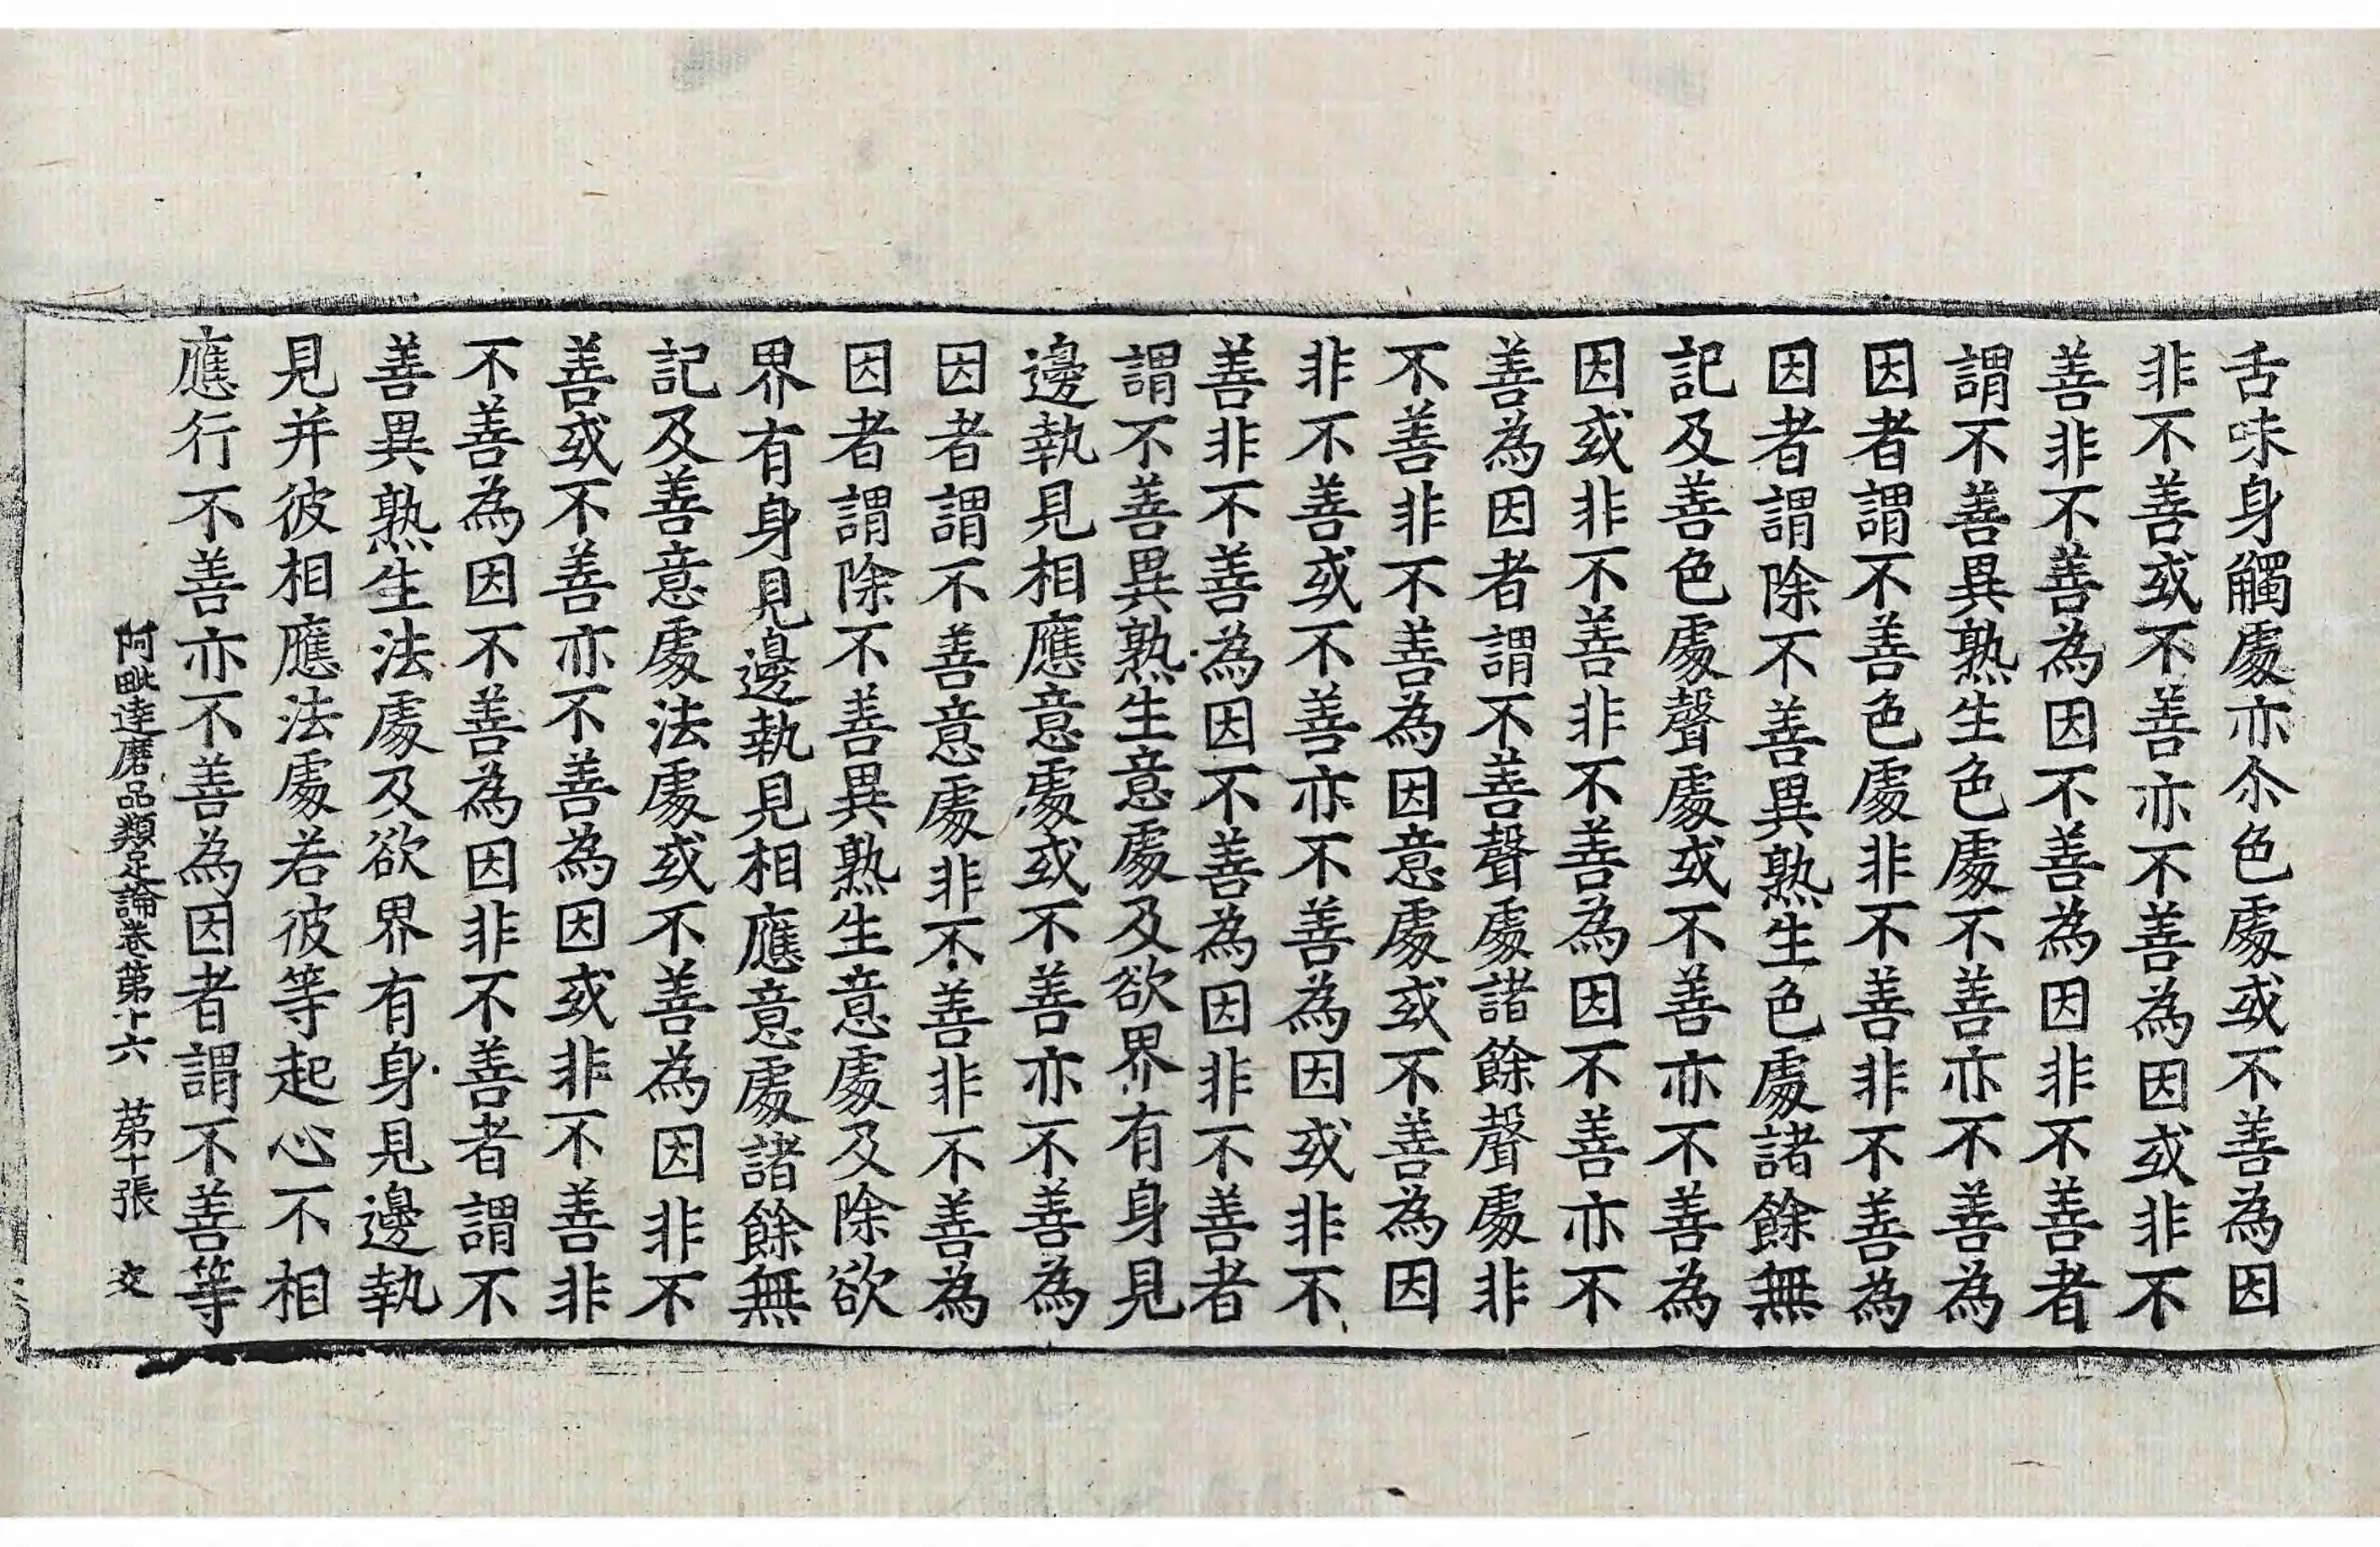 舌味身觸處亦尒色處或不善為因
非不善或不善亦不善為因或非不
善非不善為因不善為因非不善者
謂不善異熟生色處不善亦不善為
因者謂不善色處非不善非不善為
因者謂除不善異熟生色處諸餘無
記及善色處聲處或不善亦不善為
因或非不善非不善為因不善亦不
善為因者謂不善聲處諸餘聲處非
不善非不善為因意處或不善為因
非不善或不善亦不善為因或非不
善非不善為因不善為因非不善者
謂不善異熟生意處及欲界有身見
邊執見相應意處或不善亦不善為
因者謂不善意處非不善非不善為
因者謂除不善異熟生意處及除欲
界有身見邊執見相應意處諸餘無
記及善意處法處或不善為因非不
善或不善亦不善為因或非不善非
不善為因不善為因非不善者謂不
善異熟生法處及欲界有身見邊執
見并彼相應法處若彼等起心不相
應行不善亦不善為因者謂不善等
阿毗達磨品類足論卷第十六　苐十張　交